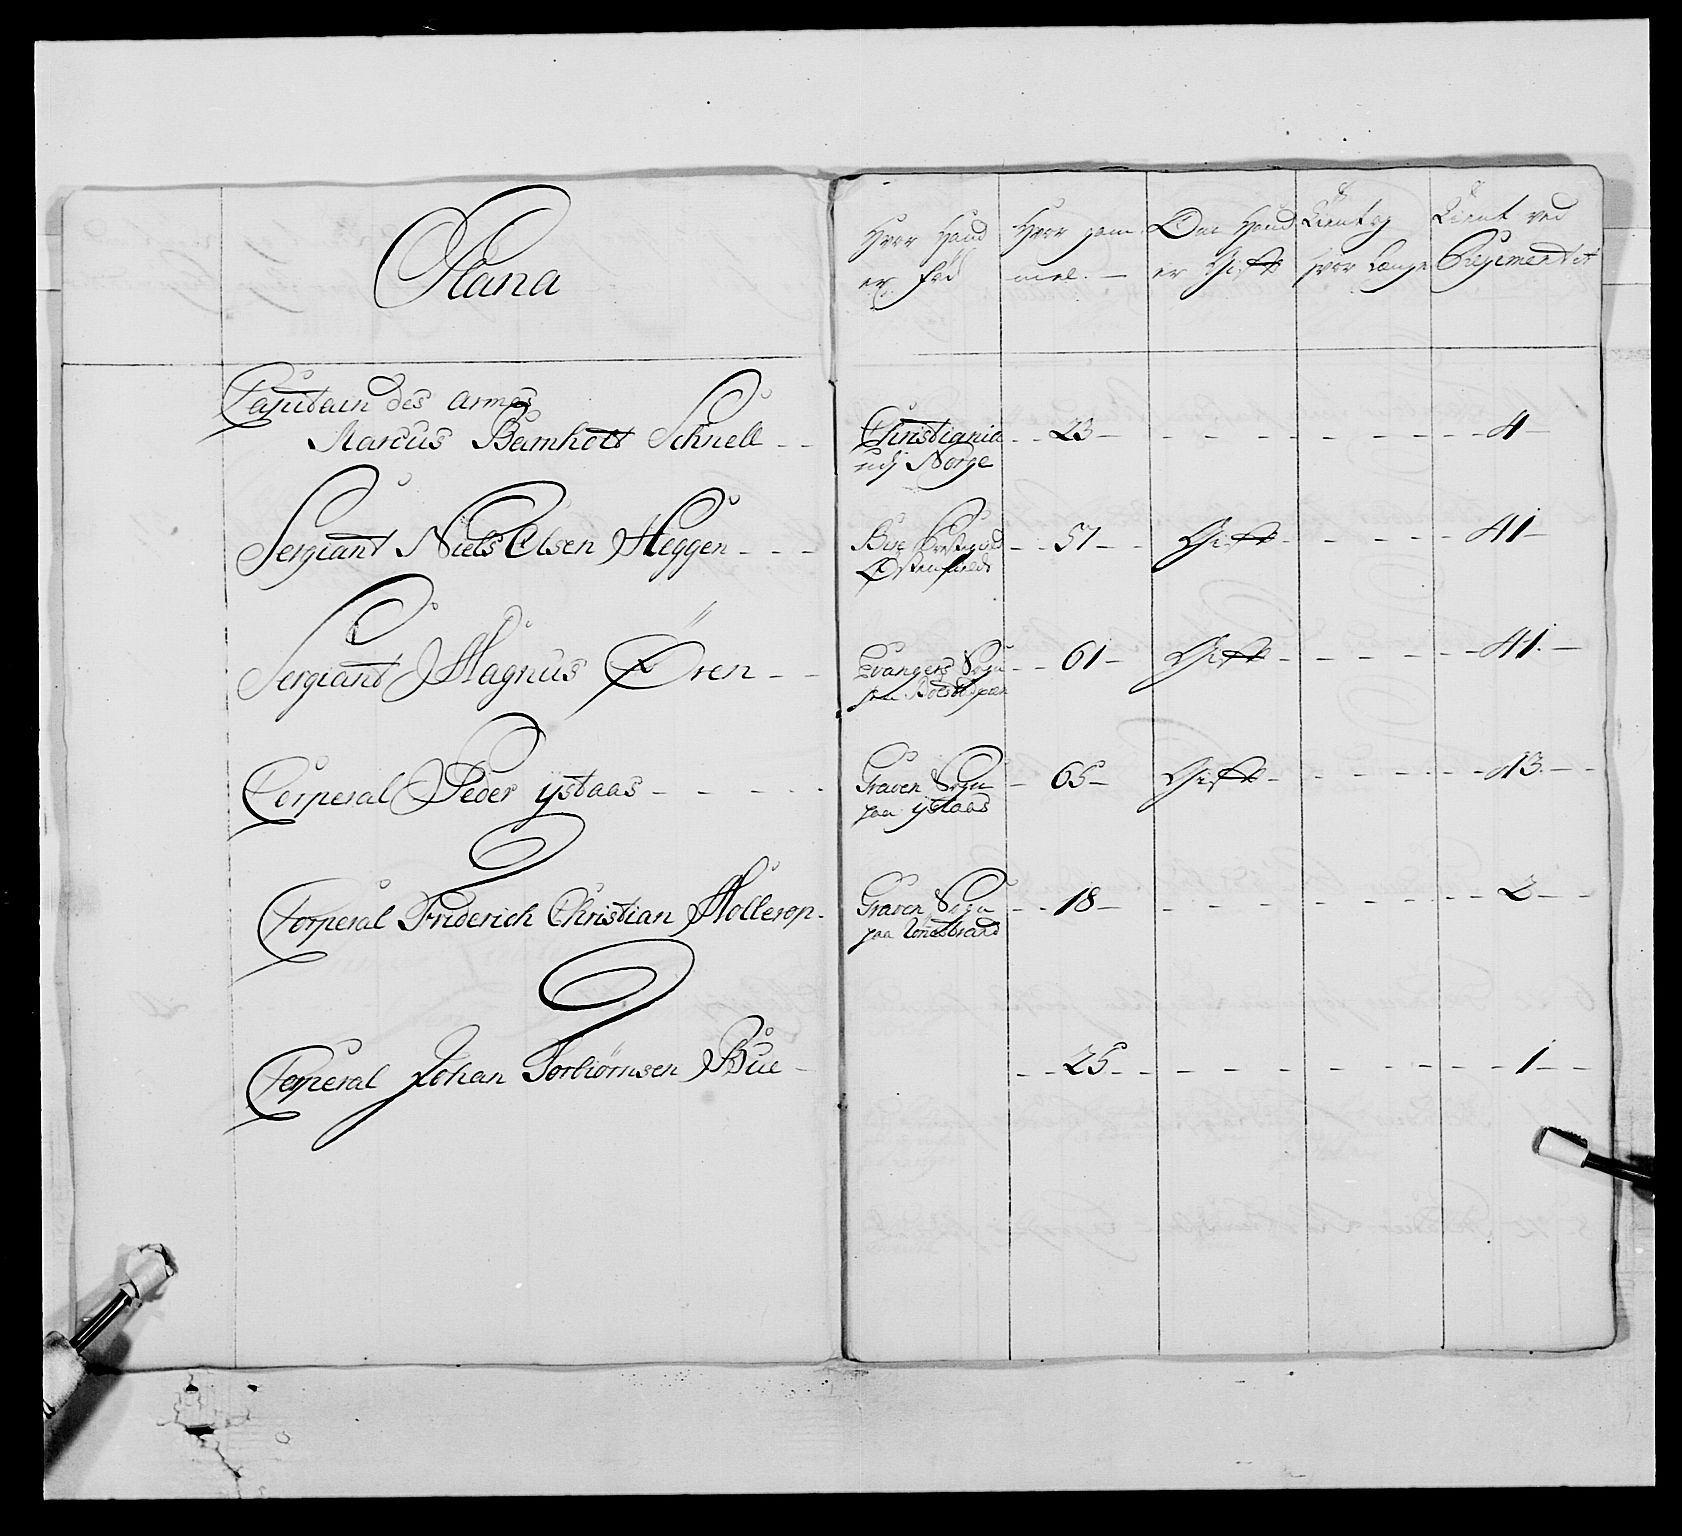 Nana
Hvor Hand er fød
Hvor gam mel.
Om Hand er Gift
Tient og hvor Længe
Tient ved Regimentet
Capitain des Armes
Marcus Barnholt Schnell - - Christiania - - 23 - - - - - - - - - - - 4 -
udj Norge
Sergiant Niels Olsen Heggen - - - Bire - - 57 - - Gift - - - - - - 41 -
Sergiant Magnus Øren - - Evangers Sogn - - 61 - Gift - - - - - - - 41 -
Corperal Peder ystaas - - - - - Graven Sogn - 65 - Gift - - - - - - - 13 - -
paa ystaas
Corperal Friderich Christian Hollerop - Graven Sogn - - 18 - - - - - - - - - - 2 - -
paa
Corperal Johan Torbiørnsen Bue - - - 25 - - - - - - - - - - - 1 - -